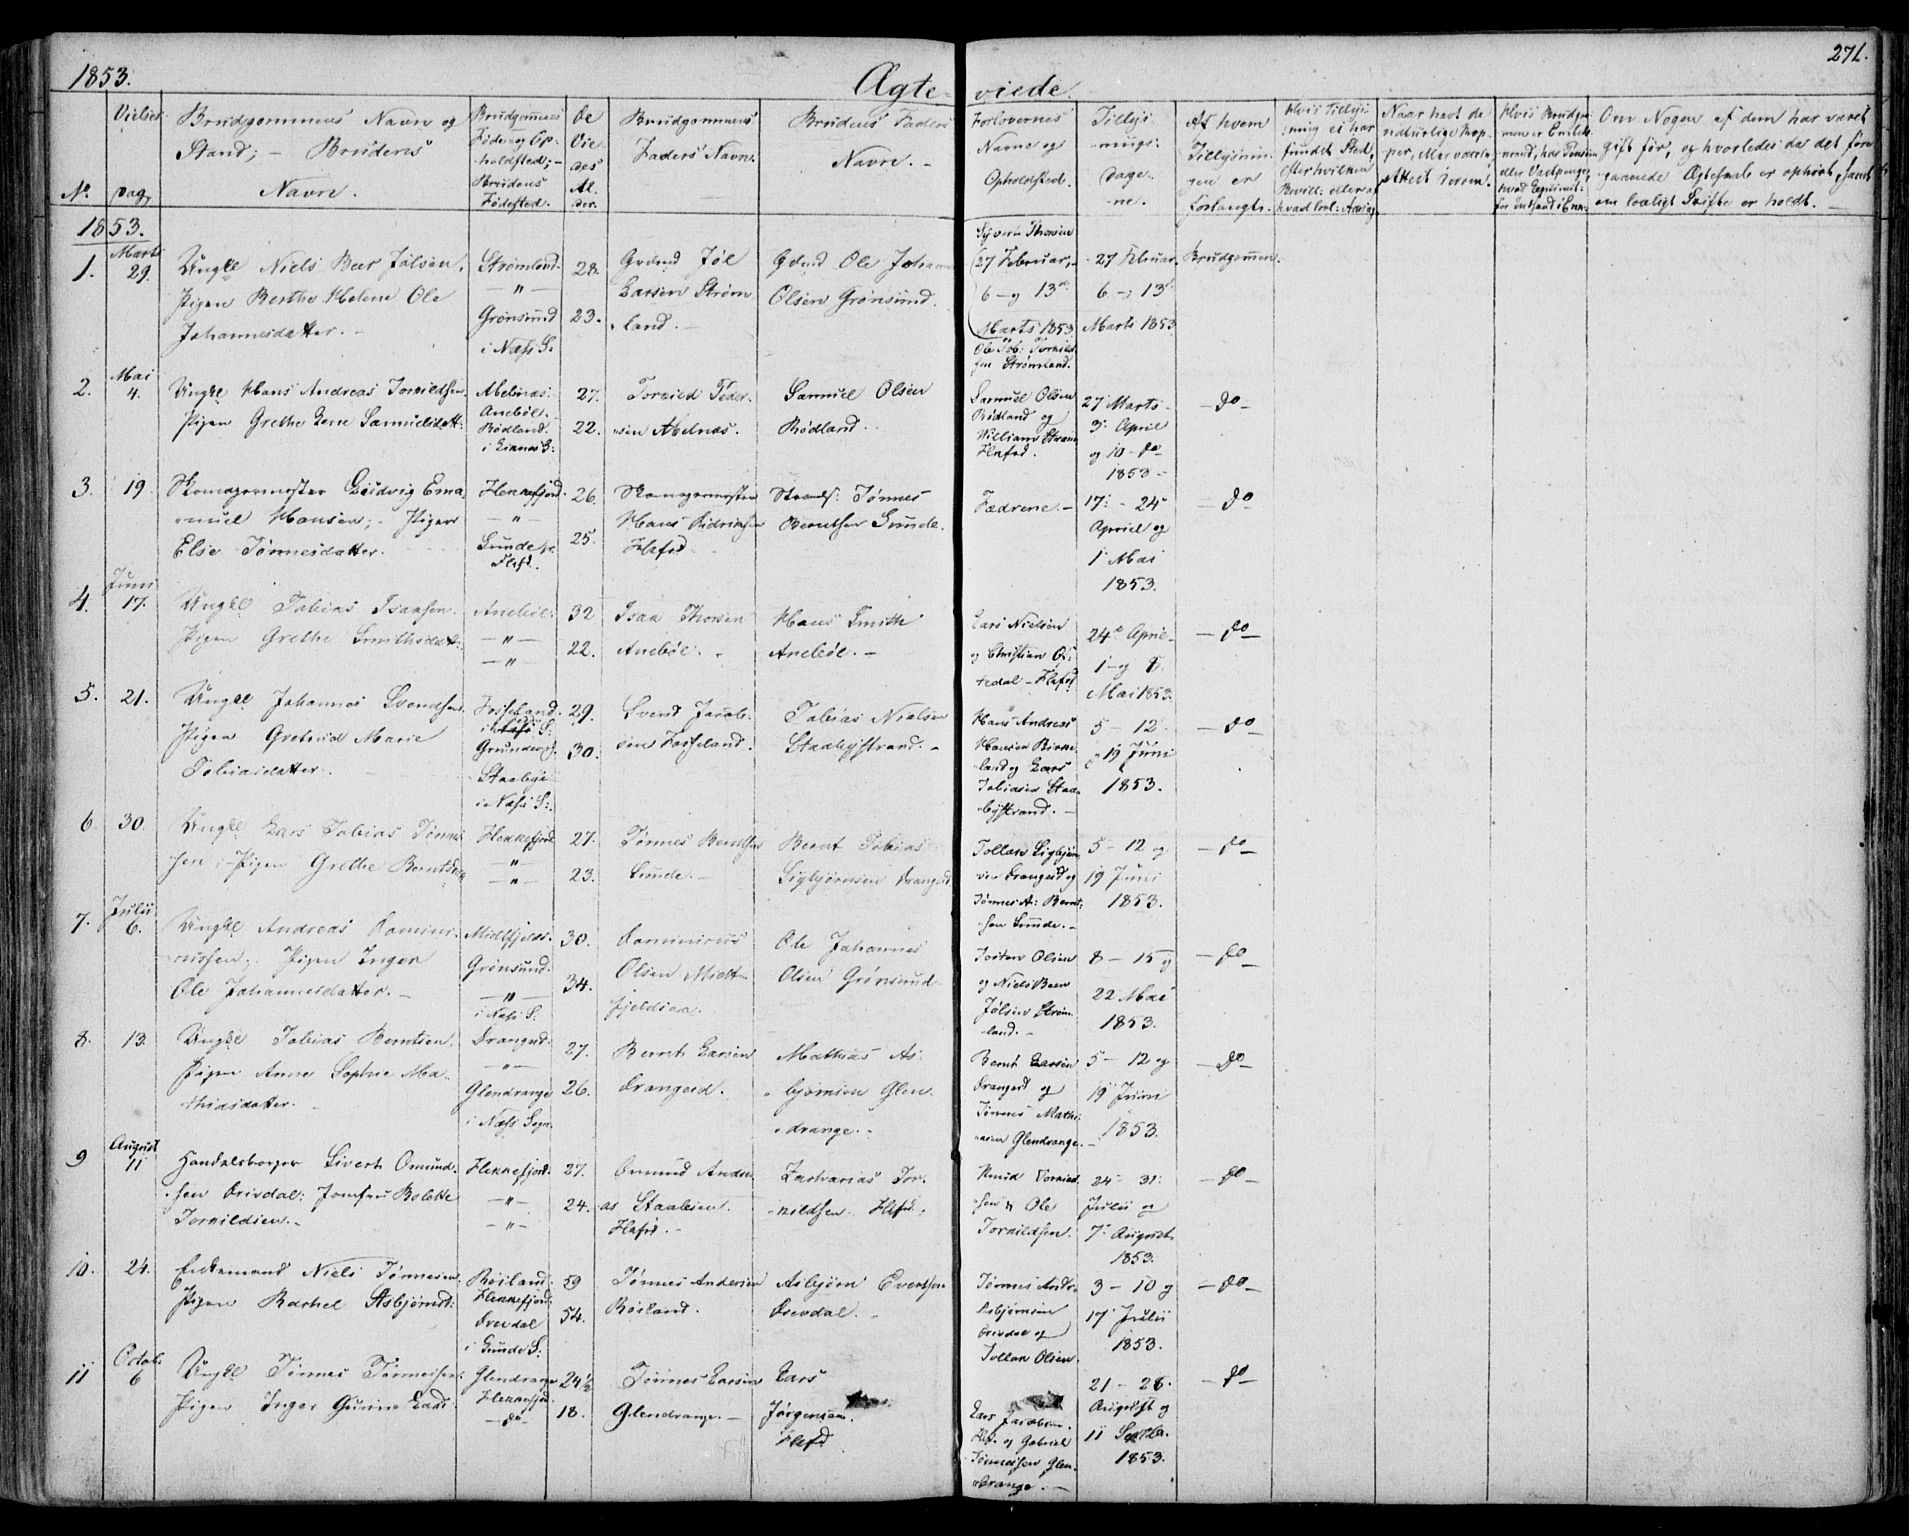 1853.
Ægte-viede.
271.
No.
Vielses
Dag,
Brudgommens Navn og
Stand; – Brudens
Navn.
Brudgommens
Føde- og Op-
holdsted; –
Brudens
Fødested.
De
Vie-
des
Al-
der.
Brudgommens
Faders Navn.
Brudens Faders
Navn. –
Forlovernes
Navne og
Opholdsted.
Tillys-
nings-
Dage-
ne.
Af hvem
Tillysnin-
gen er
forlangt.
Hvis Tillys-
ning ei har
fundet Sted,
efter hvilken
Naar havt de
naturlige Kop-
per, eller vaccin.
Attest derom.
Hvis Brudgom-
men er Enke-
mand,
Om Nogen af dem har været
gift før, og hvorledes da det fore-
gaaende Ægteskab er ophørt, samt
om lovligt Skifte er holdt. –
1853.
1.
Marts
29.
Ungkl Niels Beer Jølsen,
Pigen Berthe Helene Ole
Johannesdatter. –
Strømland.
– " –
Grønsund
i Næss S:
28.
23.
Gdmd Jøl
Larsen Strøm-
land. –
Gdmd Ole Johannes
Olsen Grønsund.
Syvert Thorsen
(27 Februar, –
6 – og 13de
Marts 1853
Ole Tob: Torkild-
sen Strømland.
27 Februar.
6 – og 13de
Marts 1853
Brudgommen.
2.
Mai
4.
Ungkl Hans Andreas Torkildsen.
Pigen Grethe Lene Samuelsdatt:
Abelnæs.
Anebøl.
Rødland.
27.
22.
Torkild Peder-
sen Abelnæs.
Samuel Olsen
Rødland.
Samuel Olsen
Rødland og
William Strøm
Flkfd.
27 Marts –
3: April
og 10 – do
1853 –
– do –
3.
19.
Skomagermester Ludvig Ema-
nuel Hansen; – Pigen
Else Tønnesdatter.
Flekkefjord.
– " –
Sunde pr
Flkfd.
26.
25.
Skomagermester
Hans Didriksen
Flkfd.
Tønnes
Berntsen Sunde.
Fædrene. –
17: – 24de
April og
1 Mai
1853.
– do
4.
Juni
17.
Ungkl Tobias Isaksen.
Pigen Grethe Smithsdatt:
Anebøl:
– " –
– " –
32
22.
Isaa Thorsen
Anebøl. –
Hans Smith
Anebøl. –
Lars Nielsen
og Christian
tedal – Flkfd
24de April –
1 – og 8.
Mai 1853.
– do –
5.
21.
Ungkl Johannes Svendsen.
Pigen Gertrud Marie
Tobiasdatter.
Fosseland.
Staaby
i Næss S:
29.
30.
Svend Jacob-
sen Fosseland.
Tobias Nielsen
Staabystrand. –
Hans Andreas
Hansen Birke-
land og Lars
Tobiasen Staa-
bystrand. –
5 – 12
19 Juni
1853.
– do –
6.
30.
Ungkl Lars Tobias Tønnes-
sen; – Pigen Grethe Berntsd:
Flekkefjord
– " –
– " –
27.
23.
Tønnes Berntsen
Sunde. –
Bernt Tobias
Sigbjørnsen Drangeid
Tollak Sigbjørn-
sen Drangeid og
Tønnes A: Bernt-
sen Sunde. –
5 – 12 og
19 Juni
1853.
– do –
7.
Julii
6.
Ungkl Andreas Domini-
cussen; Pigen Inger
Ole Johannesdatter. –
Grønsund.
– " –
i Næss S.
30.
34.
Dominicus
Olsen Midt-
fjeldsaa.
Ole Johannes
Olsen Grønsund.
Olsen
og Niels Beer
Jølsen Strøm-
land. –
8 – 15 og
22 Mai
1853.
– do –
8.
13.
Ungkl Tobias Berntsen.
Pigen Anne Sophie Ma-
thiasdatter.
Drangeid.
– " –
Glendrange
i Næss Sogn.
27.
26.
Bernt Larsen
Drangeid.
Mathias As-
bjørnsen Glen-
drange. –
Bernt Larsen
Drangeid og
Tønnes Mathi-
asen Glendrange. –
5 – 12 og
19 Juni
1853.
– do –
9
August
11
Handelsborger Sivert Omund-
sen Drivdal: Jomfru Bolette
Torkildsen. –
Flekkefjord:
– " –
– " –
27.
24.
Omund Andre-
as Staalesen.
Flkfd. –
Zacharias Tor-
kildsen Flkfd.
Knud Torkild-
sen & Ole
Torkildsen.
24 – 31:
Julii og
7de August
1853.
– do –
10.
24.
Enkemand Niels Tønnesen.
Pigen Rachel Asbjørnsd:
Røiland:
Flekkefjord:
Drevdal
i Sunde S:
59
54.
Tønnes Andersen
Røiland.
Asbjørn Evertsen
Drevdal. –
Tønnes
Asbjørnsen
Drivdal og
Tollak Olsen.
3 – 10 og
17 Julii
1853.
– do –
11
Octob.
6
Ungkl Tønnes Tønnessen:
Pigen Inger Gurine Larsd:
Glendrange
Flekkefjord.
– do –
24½
18.
Tønnes Larsen
Glendrange. –
Lars
Jørgensen.
Flkfd
Lars Jacobsen.
Flkf. og Gabriel
Tønnessen Glen-
drange. –
21 – 28.
August og
11 Septbr.
1853.
– do –